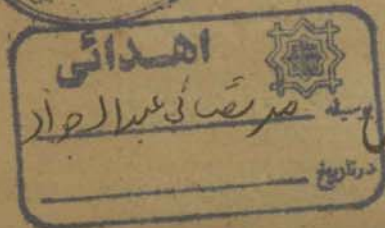 اهدائی
بوسیله مرتضائی عبدالجواد
در تاریخ